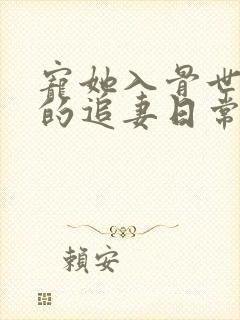 寵她入骨世
的追妻日常
賴安